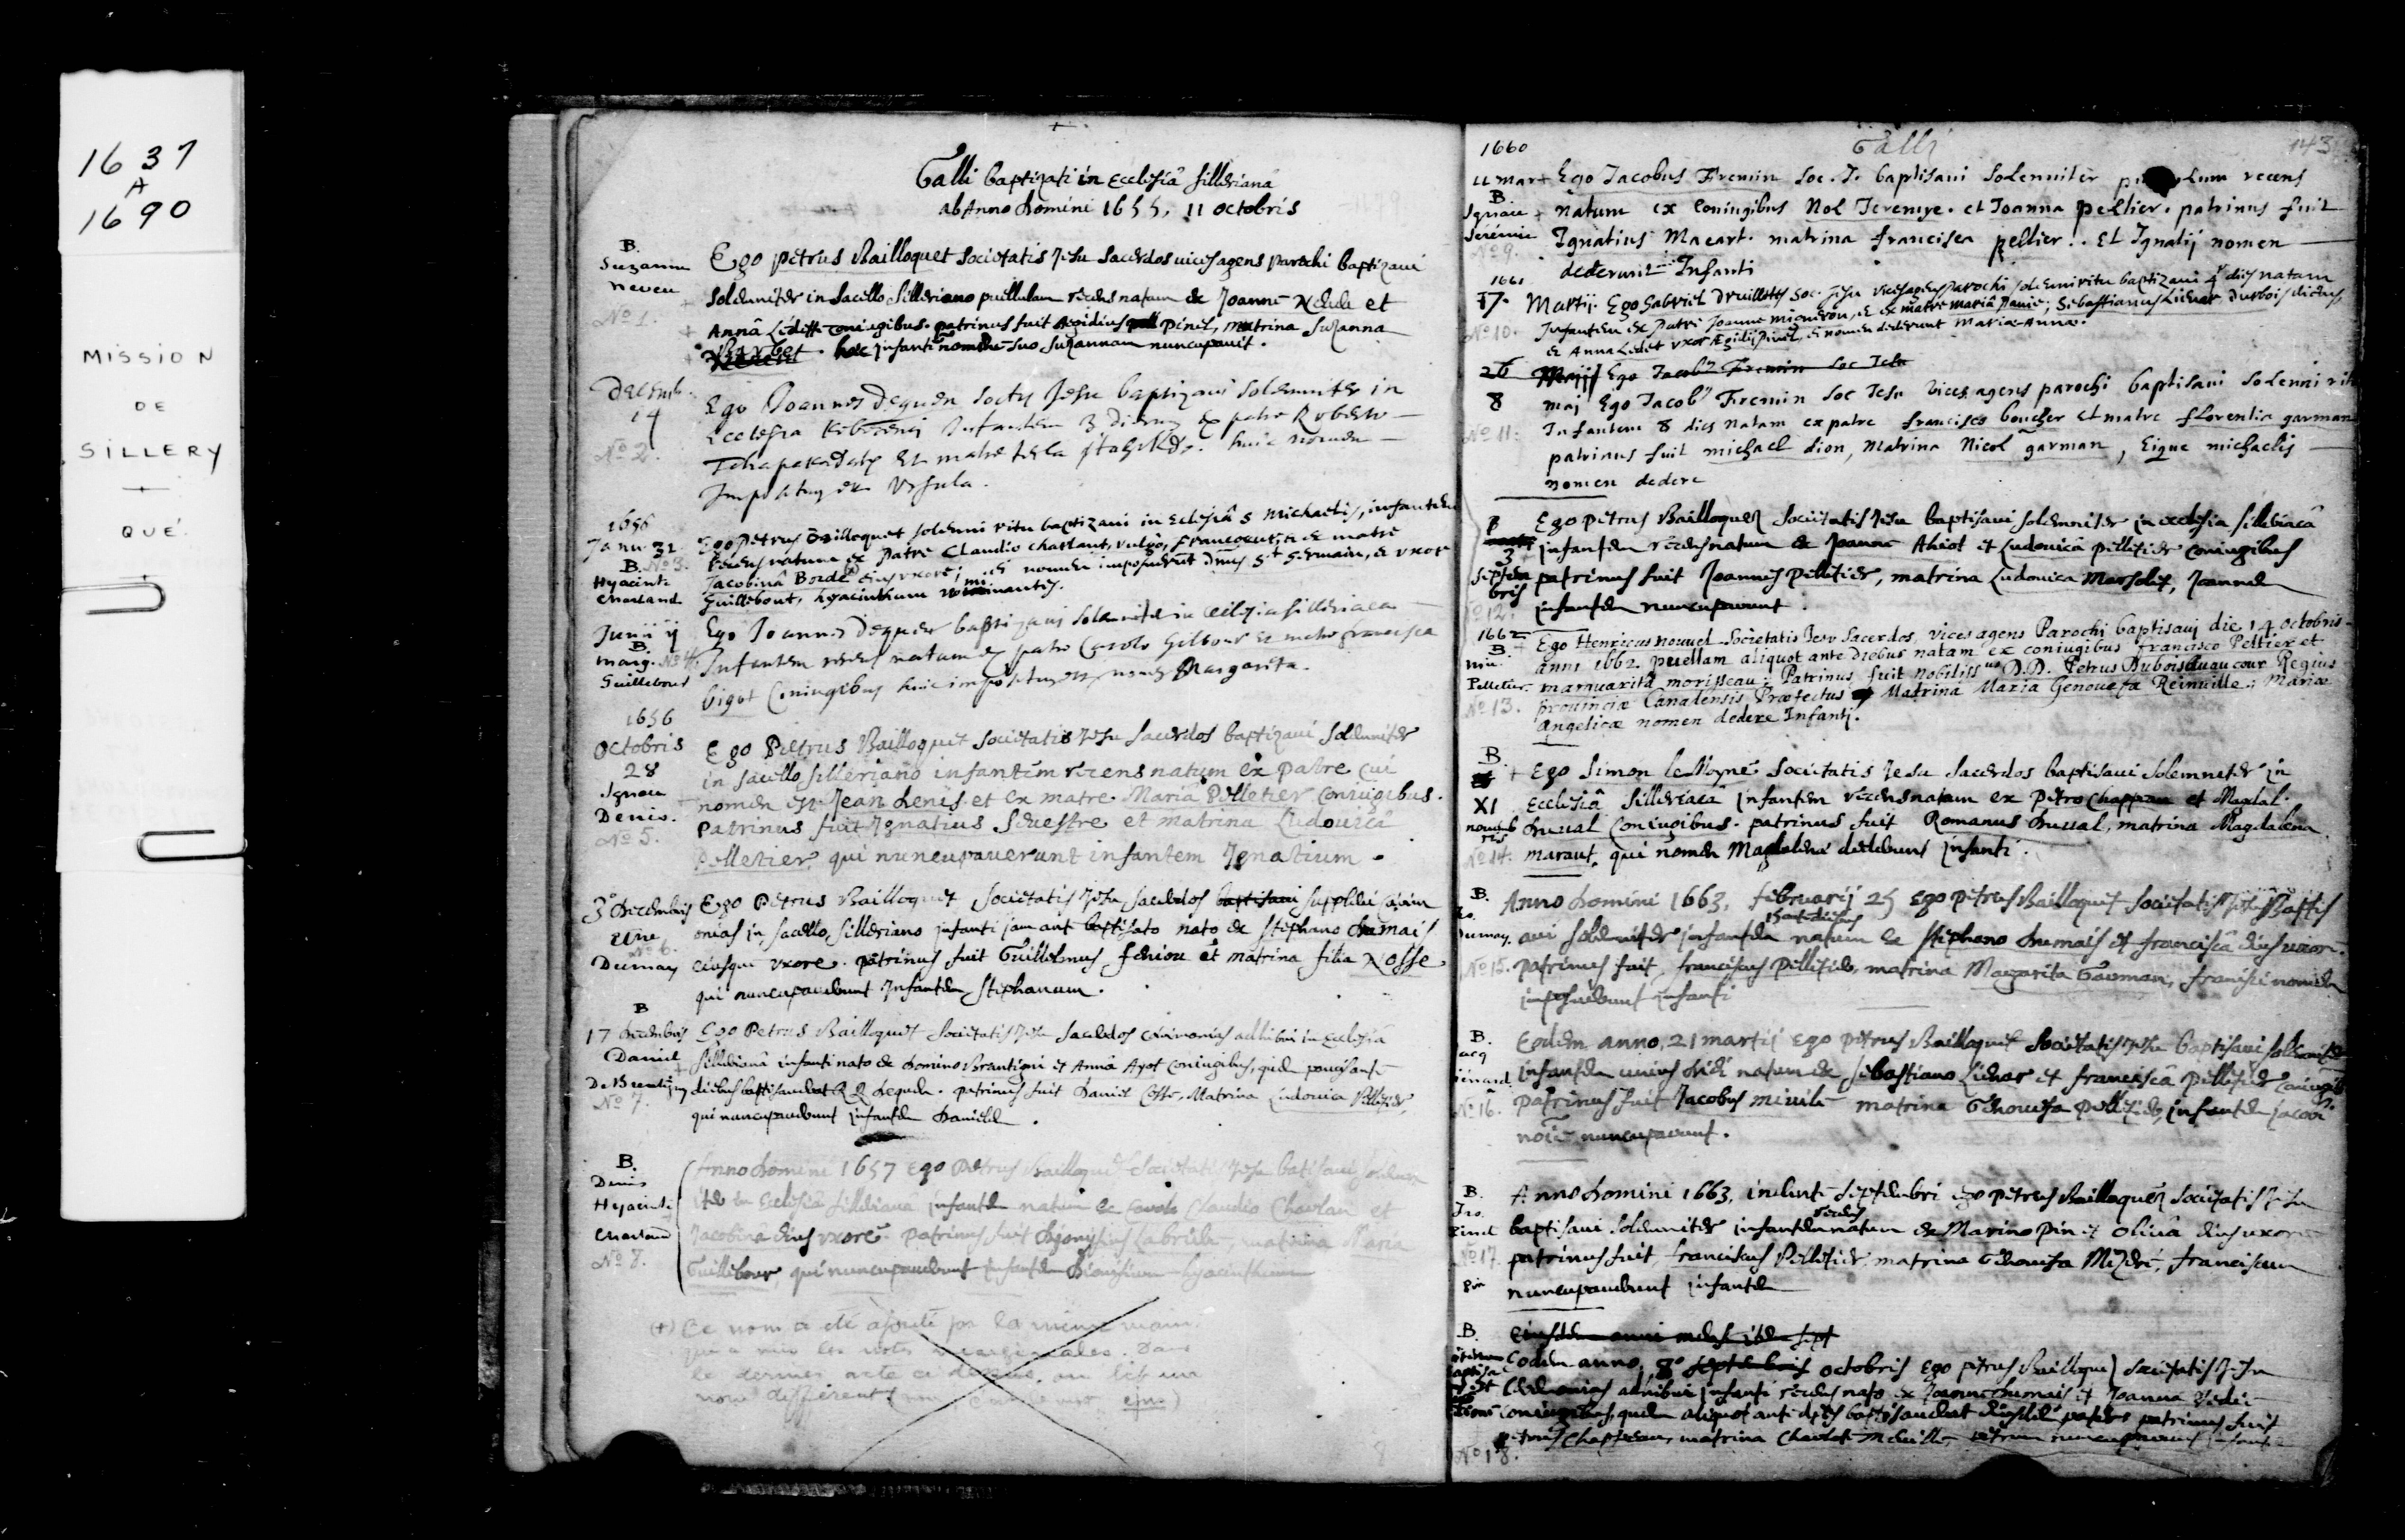 1637
A
1690
MISSION
DE
SILLERY
QUÉ.
Galli baptizati in Ecclesiâ silleriana
ab Anno Domini 1655, 11 octobris
B.
Suzanne
neveu
No 1.
Ego petrus Bailloquet societatis Jesu sacerdos vices agens parochi baptizavi
solemniter in sacello silleriano puellulam recens natam ex Joanne et
Annâ coniugibus. patrinus fuit Aegidius pinel, matrina suzanna
hæc infanti nomine suo suzannam nuncupavit.
Decemb.
14
No 2.
Ego Joannes dequen soctis Jesu baptizavi solemniter in
Ecclesia Infantem 3 dierum ex patre Roberto
et matre huic nomen
impositum est Ursula.
1656
Janu. 31
B. No 3.
Hyacinte
Charland
Ego petrus Bailloquet solemni ritu baptizavi in Eclesiâ S Michaelis, infantem
recens natum ex patre Claudio charlant, vulgò, francoeur, & ex matre
Jacobinâ Borde eius uxore; ei nomen imposuerunt Dnus St Germain, & uxor
Guillebout, hyacinthum nominantes.
Junii ij
B.
Marg. No 4.
Guillebour
Ego Joannes dequen baptizavi solemniter in ecclesia silleriaca
Infantem recens natam ex patre Carolo Gilbour et matre francisca
bigot Coniugibus huic impositum nomen Margarita.
1656
Octobris
28
Ignace
Denis.
No 5.
Ego Petrus Bailloquet societatis Jesu sacerdos baptizavi solemniter
in sacello silleriano infantem recens natum ex patre cui
nomen est Jean Denis et ex matre Mariâ Pelletier coniugibus.
patrinus fuit Ignatius Sevestre et matrina Ludovica
Pelletier, qui nuncupaverunt infantem Ignatium.
3º decembris
Etne
No 6.
Dumay
Ego Petrus Bailloquet societatis Jesu sacerdos baptisavi supplevi cærim
onias in sacello silleriano infanti jam ant baptisato nato ex stephano dumais
eiusque uxore. patrinus fuit Guillelmus feniou et matrina filia Nosse
qui nuncupaverunt Infantem stephanum.
B
17 decembris
Daniel
No 7.
Ego Petrus Bailloquet societatis Jesu sacerdos cærimonias adhibui in Ecclesiâ
silleriana infanti nato ex domino Brantigni et Annâ Ayot coniugibus, quem paucis ante
diebus baptisaverat R P dequen. patrinus fuit Daniel Matrina Ludovica Pelletier,
qui nuncupaverunt infantem Danielem.
B.
Denis
Hyacinte
Charland
No 8.
Anno Domini 1657 Ego Petrus Bailloquet societatis Jesu batisavi solemn
iter in Ecclesiâ sillerianâ infantem natum ex Claudio Charlan et
Jacobinâ eius uxore. patrinus fuit dyonysius matrina Maria
Guillebour, qui nuncupaverunt infantem dionisium hyacinthum
(+) Ce nom a été ajouté par la même main
qui a mis les notes marginales. Dans
le dernier acte ci dessus, on lit un
nom différent
8
Galli
143
1660
11 mar
B.
Ignace
Jérémie
No 9.
Ego Jacobus Fremin Soc. J. baptisavi solemniter recens
natum ex coniugibus Nol Jeremye. et Joanna peltier. patrinus fuit
Ignatius Macart. matrina francisca peltier. Et Ignatij nomen
dederunt Infanti
1661
17.
No 10.
Martij. Ego Gabriel Druillettes Soc. Jesu vices agens parochi solemni ritu baptizavi 4 dies natam
Infantem ex patre Joanne migneron, & ex matre mariâ pavie; Sebastianus Lienar durbois dictus,
& Anna Ledet uxor Ægidij pinel, ei nomen dederunt Mariæ-Annæ.
26 Maij Ego Jacobus Fremin Soc Jesu
8
No 11.
maj Ego Jacobus Fremin Soc Jesu vices agens parochi baptisavi solenni ritu
Infantem 8 dies natam ex patre francisco boucher et matre florentia garman
patrinus fuit michael dion, Matrina Nicol garman, Eique michaelis
nomen dedere
3
Septem
bris
No 12.
Ego petrus Bailloquet societatis Jesu baptisavi solemniter in ecclesia silleriacâ
infantem recens natum ex Joanne Ahiot et Ludovicâ pelletier coniugibus
patrinus fuit Joannes pelletier, matrina Ludovica Marsolet, Joannem
infantem nuncuparunt.
1662
B.
Pelletier
No 13.
Ego Henricus nouvel Societatis Jesu Sacerdos, vices agens Parochi baptisavi die 14 octobris
anni 1662. puellam aliquot ante diebus natam ex coniugibus francisco Peltier et
marguaritâ morisseau; Patrinus fuit nobilissus D.D. Petrus Duboisdavaucour Regius
provinciæ Canadensis Præfectus Matrina Maria Genovefa Reinville; Mariæ
Angelicæ nomen dedere Infanti.
B.
XI
novemb
ris
No 14.
Ego Simon leMoyne Societatis Jesu Sacerdos baptisavi solemniter in
Ecclesiâ silleriacâ infantem recens natam ex Petro Chappeau et Magdal.
Duval coniugibus. patrinus fuit Romanus Duval, matrina Magdalena
maraut, qui nomen Magdalenæ dederunt infanti.
B.
Dumay.
No 15.
Anno Domini 1663, februarij 25 Ego petrus Bailloquet societatis Jesu Baptis
avi solemniter infantem natum ex stephano dumais et franciscâ eius uxore.
patrinus fuit, franciscus pelletier, matrina Margarita Gaoman, francisci nomen
imposuerunt infanti
B.
Jacq
Liénard.
No 16.
Eodem anno, 21 martij Ego petrus Bailloquet societatis Jesu baptisavi solemniter
infantem unius diei natum ex sebastiano Lienar et franciscâ pelletier coniugib
patrinus fuit Jacobus mivile matrina Genovefa pelletier, infantem jacobi
noie nuncuparunt.
B.
Fro.
Pinel
No 17.
Pin
Anno Domini 1663, ineunte septembri ego petrus Bailloquet societatis Jesu
baptisavi solemniter infantem recens natum ex Marino pin et olivâ eius uxore
patrinus fuit, franciscus Pelletier, matrina Genovefa Mezeré, franciscum
nuncupaverunt infantem
B.
Eiusdem anni mensis sept
Eodem anno, 8º septembris octobris Ego petrus Bailloquet societatis Jesu
cæremonias adhibui infanti recens nato ex Joanne dumais et Joanna
coniugibus, quem aliquot ante dies baptisaverat patrinus fuit
petrus Chappeau, matrina Charlot
No 18.